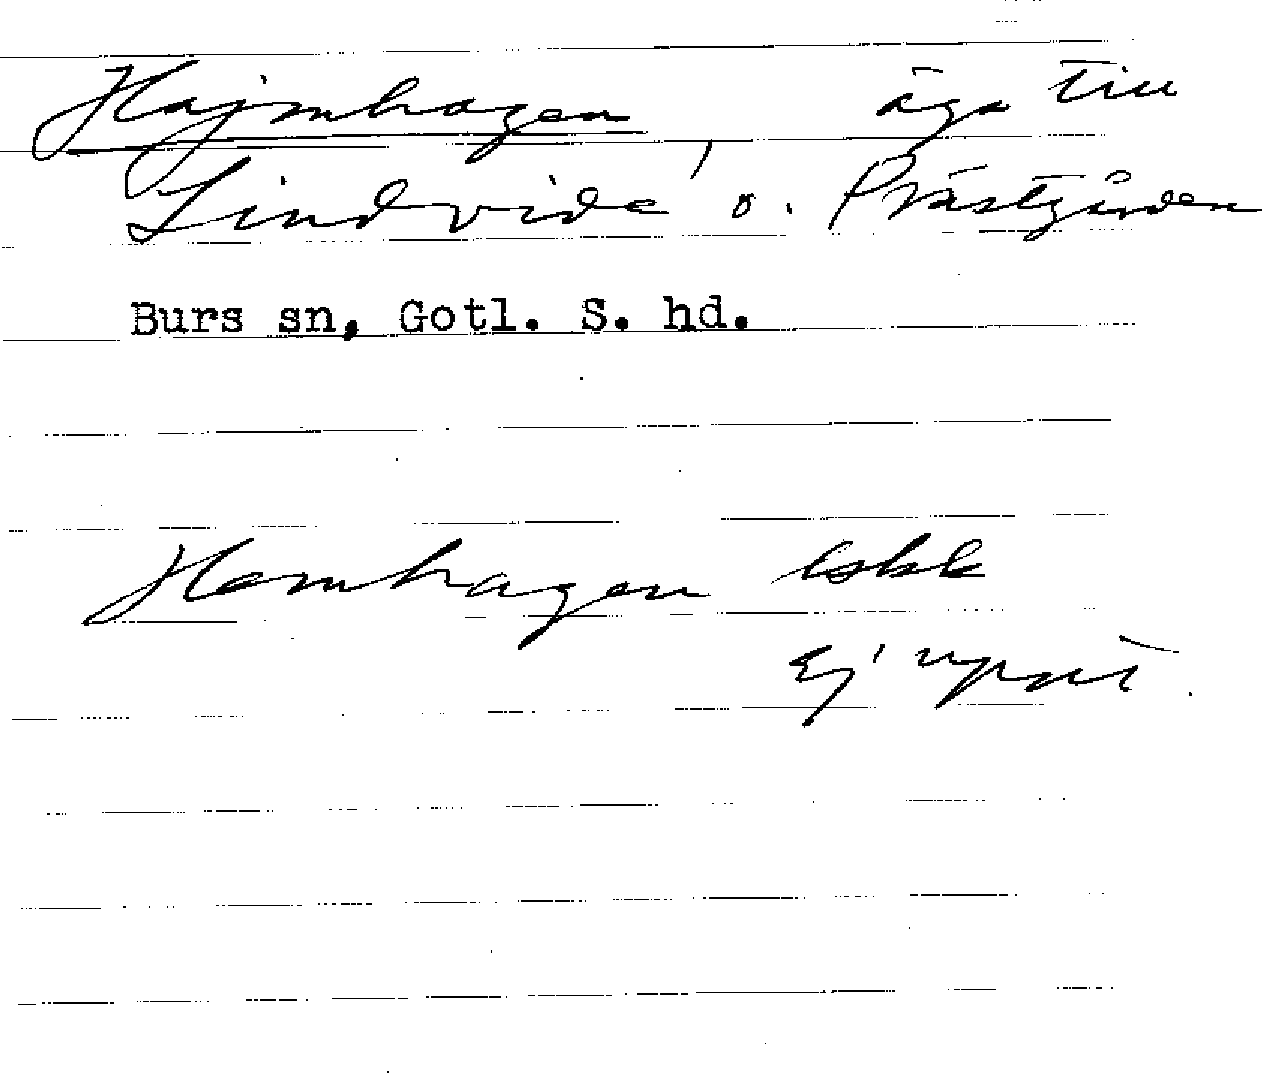 Hajmhagen, äga till
Lindvide o. Prästgården
Burs sn, Gotl. S. hd.
Hemhagen lskk
ej uppt.